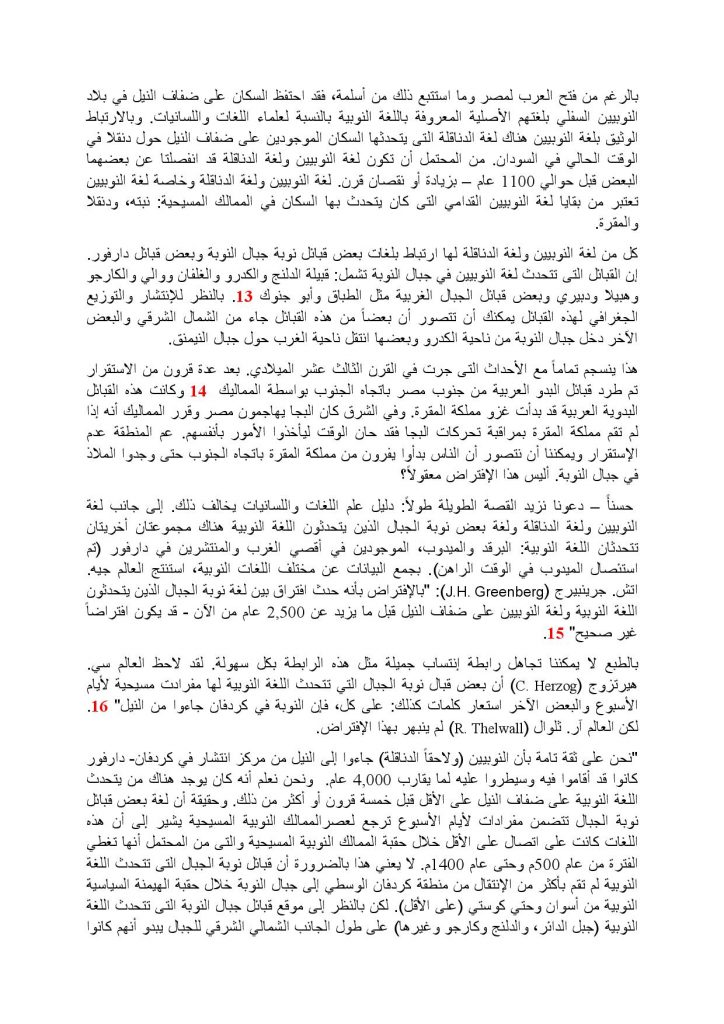 بالرغم من فتح العرب لمصر وما استتبع ذلك من أسلمة، فقد احتفظ السكان على ضفاف النيل في بلاد
النوبيين السفلي بلغتهم الأصلية المعروفة باللغة النوبية بالنسبة لعلماء اللغات واللسانيات. وبالارتباط
الوثيق بلغة النوبيين هناك لغة الدناقلة التى يتحدثها السكان الموجودين على ضفاف النيل حول دنقلا في
الوقت الحالي في السودان. من المحتمل أن تكون لغة النوبيين ولغة الدناقلة قد انفصلتا عن بعضهما
البعض قبل حوالي 1100 عام – بزيادة أو نقصان قرن. لغة النوبيين ولغة الدناقلة وخاصة لغة النوبيين
تعتبر من بقايا لغة النوبيين القدامي التى كان يتحدث بها السكان في الممالك المسيحية: نبته، ودنقلا
والمقرة.
كل من لغة النوبيين ولغة الدناقلة لها ارتباط بلغات بعض قبائل نوبة جبال النوبة وبعض قبائل دارفور.
إن القبائل التى تتحدث لغة النوبيين في جبال النوبة تشمل: قبيلة الدلنج والكدرو والغلفان ووالي والكارجو
وهبيلا ودبيري وبعض قبائل الجبال الغربية مثل الطباق وأبو جنوك 13. بالنظر للإنتشار والتوزيع
الجغرافي لهذه القبائل يمكنك أن تتصور أن بعضاً من هذه القبائل جاء من الشمال الشرقي والبعض
الآخر دخل جبال النوبة من ناحية الكدرو وبعضها انتقل ناحية الغرب حول جبال النيمنق.
هذا ينسجم تماماً مع الأحداث التى جرت في القرن الثالث عشر الميلادي. بعد عدة قرون من الاستقرار
تم طرد قبائل البدو العربية من جنوب مصر باتجاه الجنوب بواسطة المماليك 14 وكانت هذه القبائل
البدوية العربية قد بدأت غزو مملكة المقرة. وفي الشرق كان البجا يهاجمون مصر وقرر المماليك أنه إذا
لم تقم مملكة المقرة بمراقبة تحركات البجا فقد حان الوقت ليأخذوا الأمور بأنفسهم. عم المنطقة عدم
الإستقرار ويمكننا أن نتصور أن الناس بدأوا يفرون من مملكة المقرة باتجاه الجنوب حتى وجدوا الملاذ
في جبال النوبة. أليس هذا الإفتراض معقولاً؟
حسناً – دعونا نزيد القصة الطويلة طولاً: دليل علم اللغات واللسانيات يخالف ذلك. إلى جانب لغة
النوبيين ولغة الدناقلة ولغة بعض نوبة الجبال الذين يتحدثون اللغة النوبية هناك مجموعتان أخريتان
تتحدثان اللغة النوبية: البرقد والميدوب، الموجودين في أقصي الغرب والمنتشرين في دارفور (تم
استئصال الميدوب في الوقت الراهن). بجمع البيانات عن مختلف اللغات النوبية، استنتج العالم جيه.
اتش. جرينبيرج (J.H. Greenberg): "بالإفتراض بأنه حدث افتراق بين لغة نوبة الجبال الذين يتحدثون
اللغة النوبية ولغة النوبيين على ضفاف النيل قبل ما يزيد عن 2,500 عام من الآن - قد يكون افتراضاً
غير صحيح" 15.
بالطبع لا يمكننا تجاهل رابطة إنتساب جميلة مثل هذه الرابطة بكل سهولة. لقد لاحظ العالم سي.
هيرتزوج (C. Herzog) أن بعض قبال نوبة الجبال التي تتحدث اللغة النوبية لها مفرادت مسيحية لأيام
الأسبوع والبعض الآخر استعار كلمات كذلك: على كل، فإن النوبة في كردفان جاءوا من النيل" 16.
لكن العالم آر. ثلوال (R. Thelwall) لم ينبهر بهذا الإفتراض.
"نحن على ثقة تامة بأن النوبيين (ولاحقاً الدناقلة) جاءوا إلى النيل من مركز انتشار في كردفان- دارفور
كانوا قد أقاموا فيه وسيطروا عليه لما يقارب 4,000 عام. ونحن نعلم أنه كان يوجد هناك من يتحدث
اللغة النوبية على ضفاف النيل على الأقل قبل خمسة قرون أو أكثر من ذلك. وحقيقة أن لغة بعض قبائل
نوبة الجبال تتضمن مفرادات لأيام الأسبوع ترجع لعصرالممالك النوبية المسيحية يشير إلى أن هذه
اللغات كانت على اتصال على الأقل خلال حقبة الممالك النوبية المسيحية والتى من المحتمل أنها تغطي
الفترة من عام 500م وحتى عام 1400م. لا يعني هذا بالضرورة أن قبائل نوبة الجبال التى تتحدث اللغة
النوبية لم تقم بأكثر من الإنتقال من منطقة كردفان الوسطي إلى جبال النوبة خلال حقبة الهيمنة السياسية
النوبية من أسوان وحتي كوستي (على الأقل). لكن بالنظر إلى موقع قبائل جبال النوبة التى تتحدث اللغة
النوبية (جبل الدائر، والدلنج وكارجو وغيرها) على طول الجانب الشمالي الشرقي للجبال يبدو أنهم كانوا